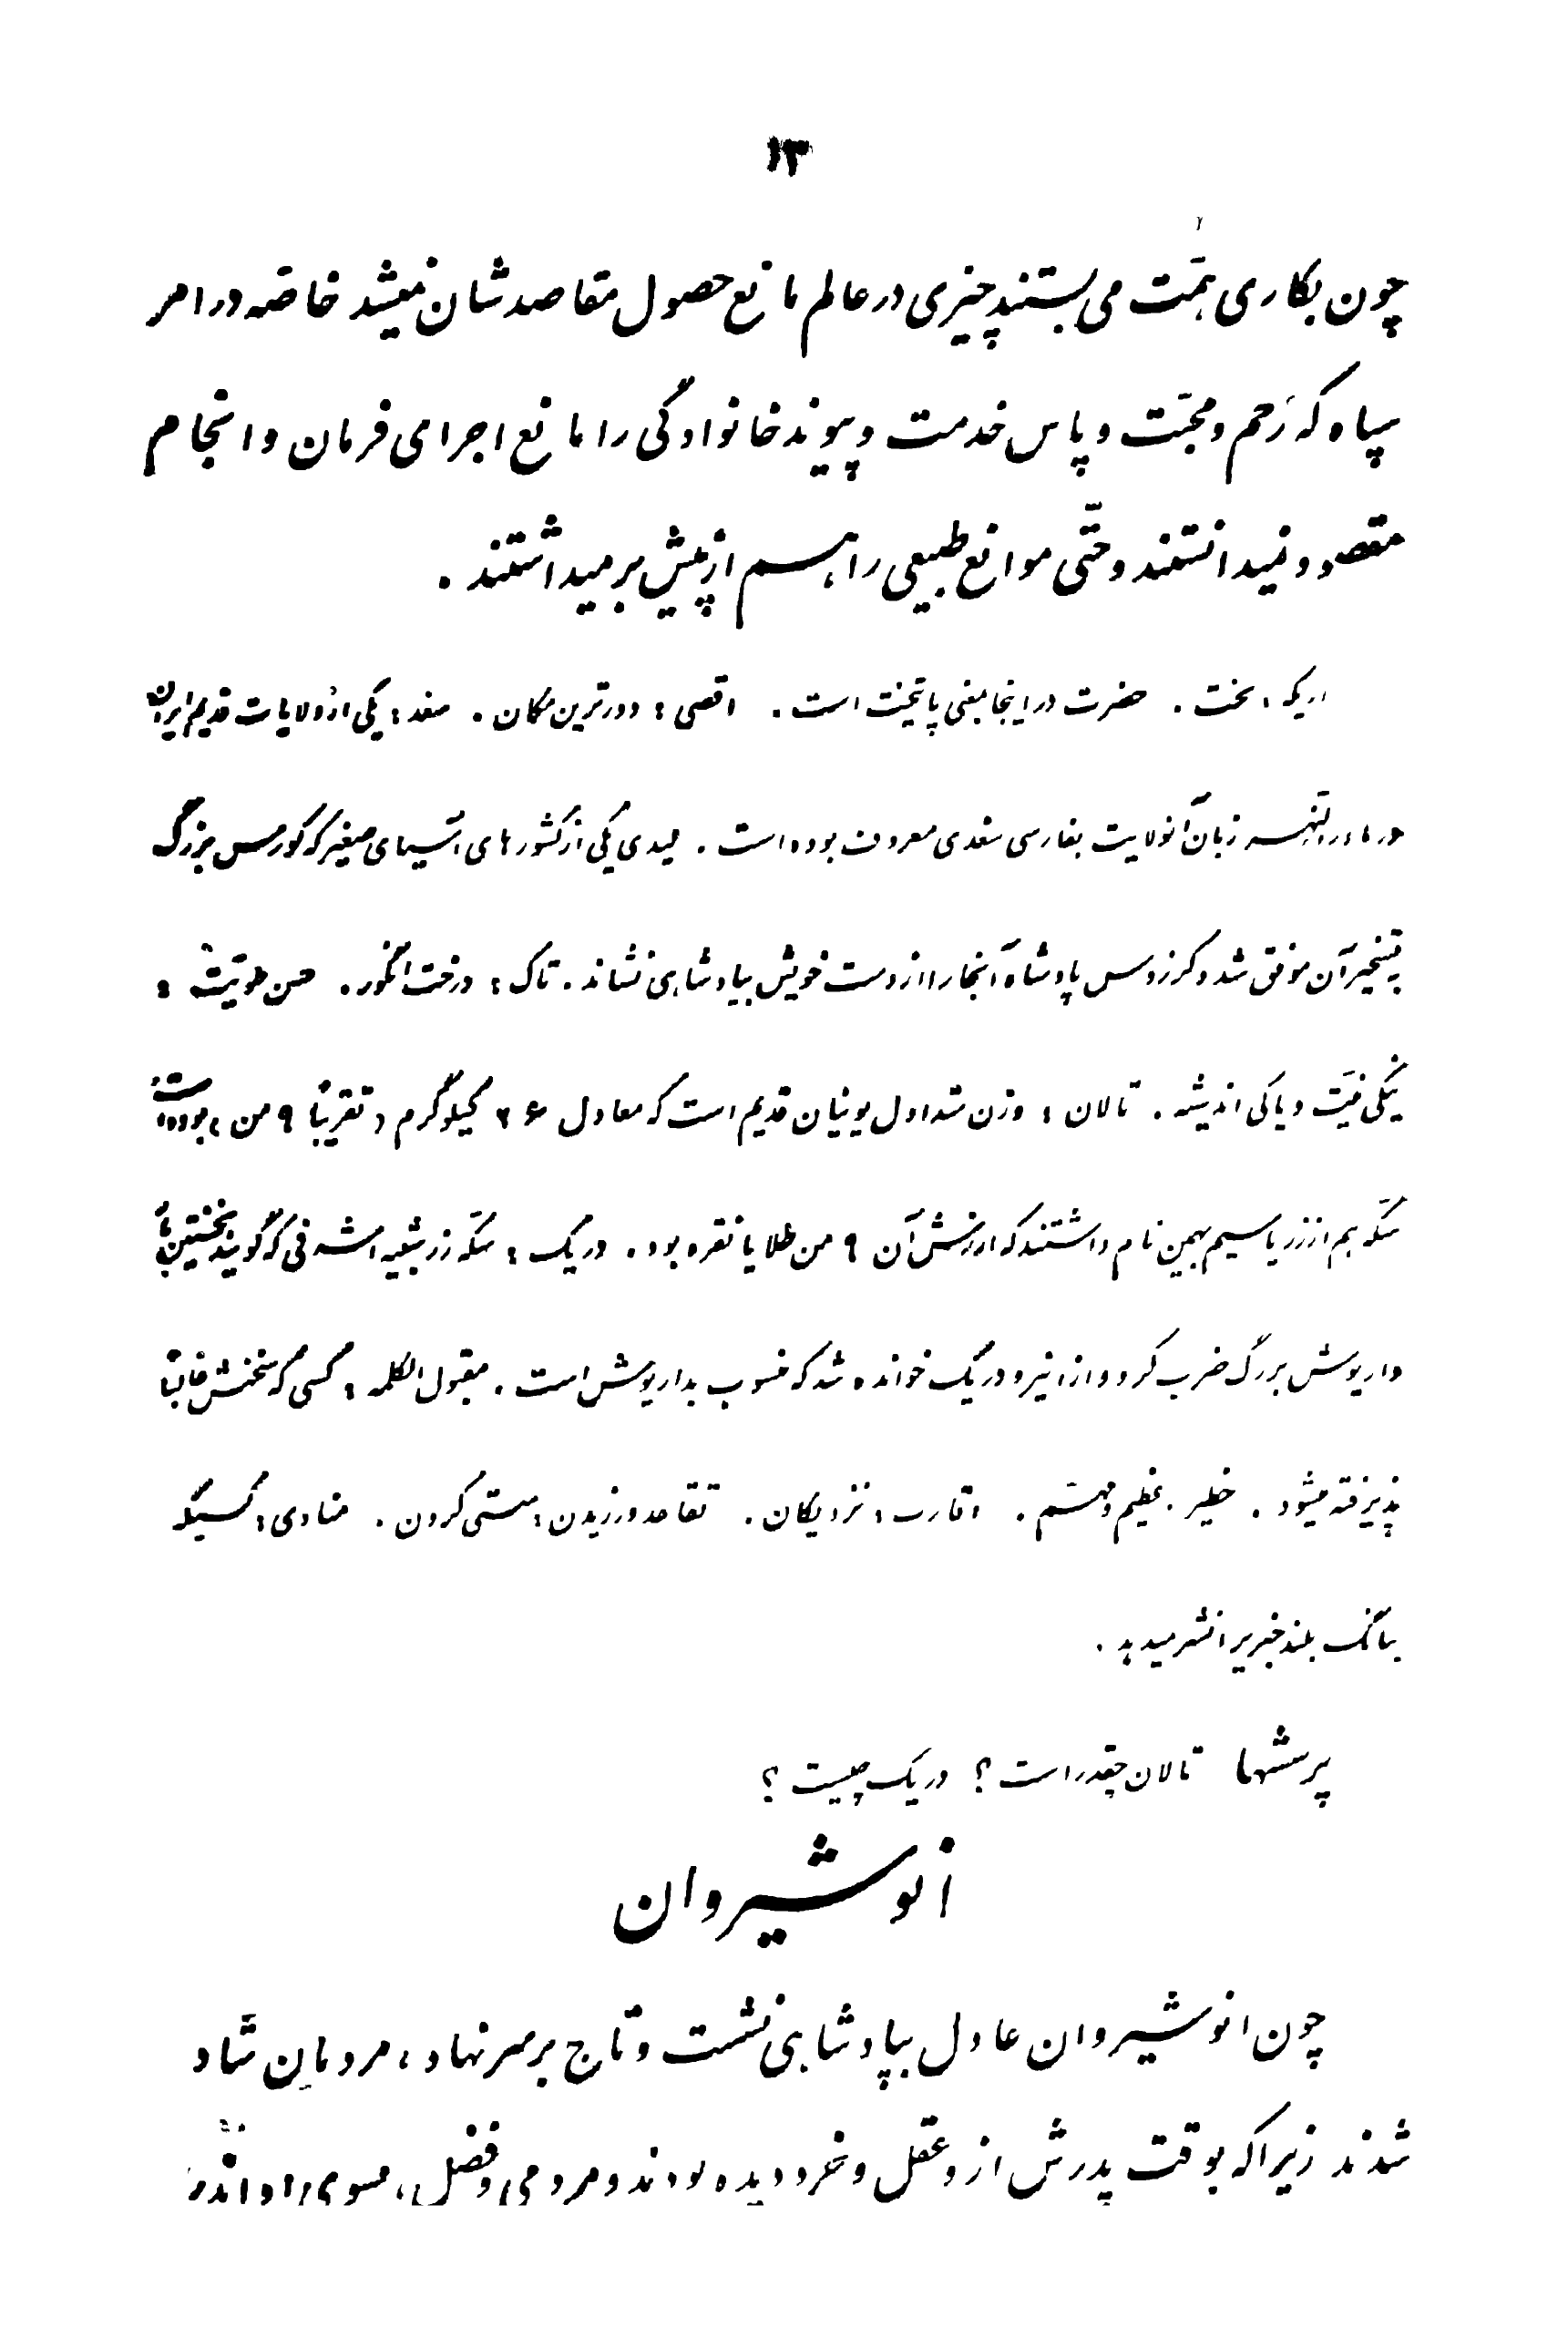 ۱۳
چون بکاری همّت می بستند چیزی در عالم مانع حصول مقاصدشان نمیشد خاصّه در امر
سپاه که رَحم و محبّت و پاس خدمت و پیوند خانوادگی را مانع اجرای فرمان و انجام
مقصود نمیدانستند و حتّی موانع طبیعی را هم از پیش بر میداشتند .
اریکه : تخت . حضرت در اینجا بمعنی پایتخت است . اقصی : دورترین مکان . سغد : یکی از ولایات قدیم ایران
در ماوراءالنّهر زبان آنولایت بفارسی سغدی معروف بوده است . لیدی یکی از کشورهای آسیای صغیر که کورس بزرگ
بتسخیر آن موفق شد و کرزوس پادشاه آنجا را از دست خویش بپادشاهی نشاند . تاک : درخت انگور . حسن طویّت :
نیکی نیّت و پاکی اندیشه . تالان : وزن متداول یونیان قدیم است که معادل ۲۶ کیلوگرم ( تقریباً ۹ من ) بوده است
سکّه هم از زر یا سیم بهمین نام داشتند که ارزش آن ۹ من طلا یا نقره بود . دریک : سکّه زر شبیه اشرفی که گویند نخستین بار
داریوش بزرگ ضرب کرد و از اینرو دریک خوانده شد که منسوب بداریوش است . مقبول الکلمه : کسی که سخنش غالباً
پذیرفته میشود . خطیر : عظیم و مهم . اقارب : نزدیکان . تقاعد ورزیدن : سستی کردن . منادی : کسیکه
ببانگ بلند خبری را نشر میدهد .
پرسشها تالان چقدر است ؟ دریک چیست ؟
انوشیروان
چون انوشیروان عادل بپادشاهی نشست و تاج بر سر نهاد ، مردمان شاد
شدند زیرا که بوقت پدرش از و عقل و خرد دیده بودند و مردمی و فضل ،